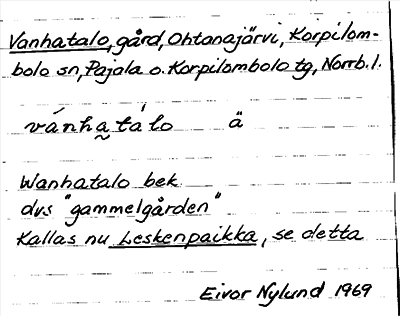 Vanhatalo, gård, Ohtanajärvi, Korpilom-
bolo sn, Pajala o. Korpilombolo tg, Norrb. l.
vánha̰tálo ä
Wanhatalo bek
dvs "gammelgården"
Kallas nu Leskenpaikka, se detta
Eivor Nylund 1969